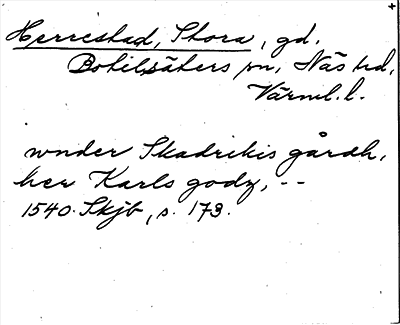 Herrestad, Stora, gd.
Botilsäters sn, Näs hd,
Värml. l.
wnder Skadrikis gårdh,
her Karls godz, --
1540. Skjb, s. 173.